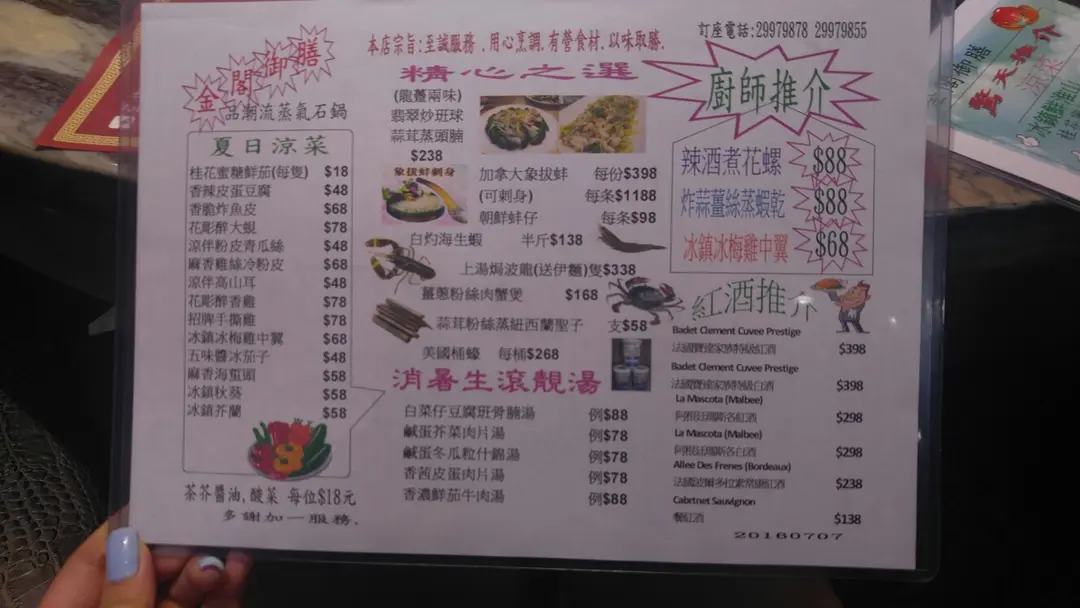 金閣御膳
品潮流蒸氣石鍋
夏日涼菜
桂花蜜糖鮮茄(每隻) $18
香辣皮蛋豆腐 $48
香脆炸魚皮 $68
花彫醉大蜆 $78
涼伴粉皮青瓜絲 $48
麻香雞絲冷粉皮 $68
涼伴高山耳 $48
花彫醉香雞 $78
招牌手撕雞 $78
冰鎮冰梅雞中翼 $68
五味醬冰茄子 $48
麻香海蜇頭 $58
冰鎮秋葵 $58
冰鎮芥蘭 $58
茶芥醬油,酸菜 每位$18元
多謝加一服務.
本店宗旨:至誠服務.用心烹調.有營食材.以味取勝.
精心之選
(龍躉兩味)
翡翠炒班球
蒜茸蒸頭腩
$238
象拔蚌刺身
加拿大象拔蚌 每份$398
(可刺身) 每条$1188
朝鮮蚌仔 每条$98
白灼海生蝦 半斤$138
上湯焗波龍(送伊麵)隻$338
薑蔥粉絲肉蟹煲 $168
蒜茸粉絲蒸紐西蘭聖子 支$58
美國桶蠔 每桶$268
消暑生滾靚湯
白菜仔豆腐班骨腩湯 例$88
鹹蛋芥菜肉片湯 例$78
鹹蛋冬瓜粒什錦湯 例$78
香茜皮蛋肉片湯 例$78
香濃鮮茄牛肉湯 例$88
訂座電話:29979878 29979855
廚師推介
辣酒煮花螺 $88
炸蒜薑絲蒸蝦乾 $88
冰鎮冰梅雞中翼 $68
紅酒推介
Badet Clement Cuvee Prestige
法國寶達家族特級紅酒 $398
Badet Clement Cuvee Prestige
法國寶達家族特級白酒 $398
La Mascota (Malbee)
$298
La Mascota (Malbee)
$298
Allee Des Frenes (Bordeaux)
$238
Cabrtnet Sauvignon
餐紅酒 $138
20160707
御膳
驚天推介